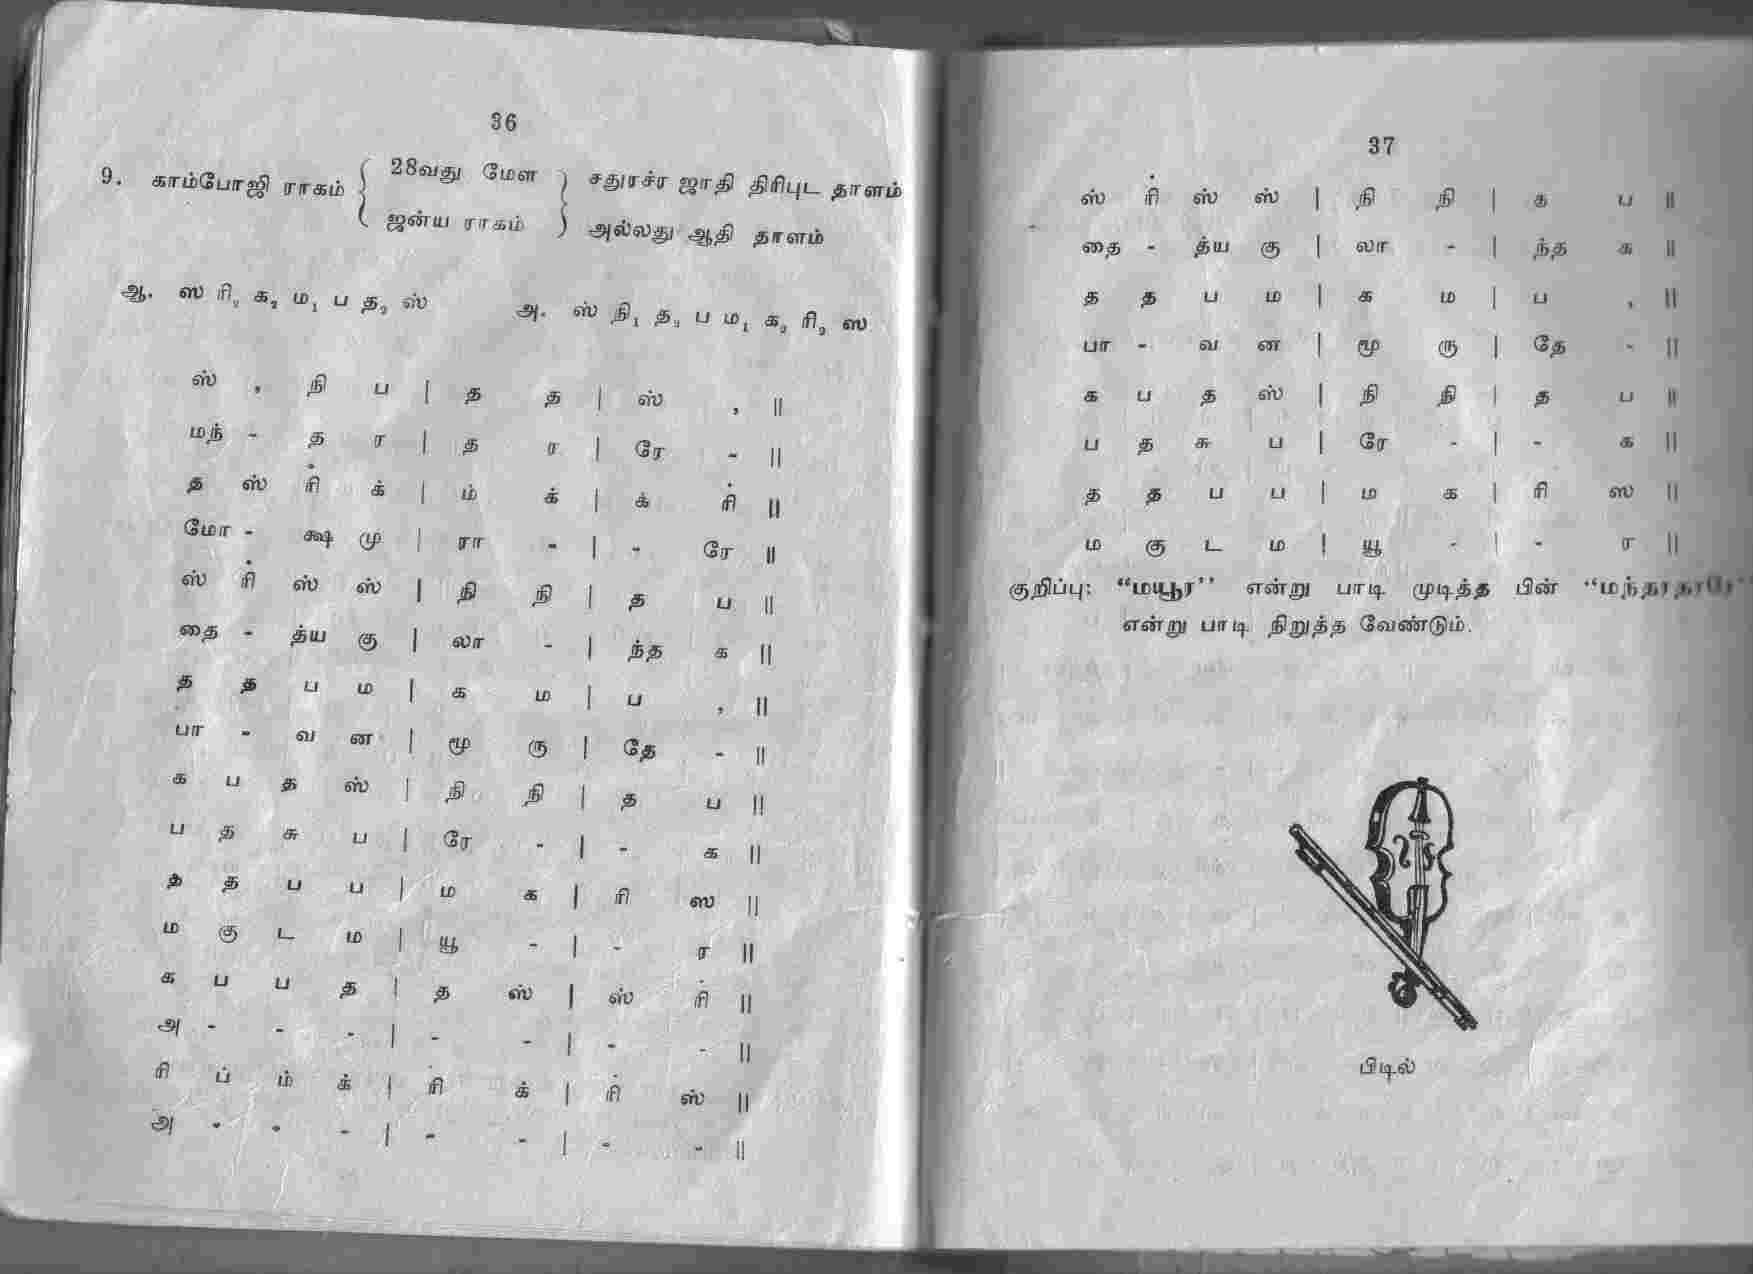 36
9. காம்போஜி ராகம் { 28வது மேள } சதுரச்ர ஜாதி திரிபுட தாளம்
{ ஜன்ய ராகம் } அல்லது ஆதி தாளம்
ஆ. ஸ ரி₂ க₂ ம₁ ப த₂ ஸ் அ. ஸ் நி₁ த₂ ப ம₁ க₂ ரி₂ ஸ
ஸ் , நி ப | த த | ஸ் , ||
மந் - த ர | த ர | ரே - ||
த ஸ் ரி் க் | ம் க் | க் ரி் ||
மோ - க்ஷ மு | ரா - | - ரே ||
ஸ் ரி் ஸ் ஸ் | நி நி | த ப ||
தை - த்ய கு | லா - | ந்த க ||
த த ப ம | க ம | ப , ||
பா - வ ன | மூ ரு | தே - ||
க ப த ஸ் | நி நி | த ப ||
ப த சு ப | ரே - | - க ||
த த ப ப | ம க | ரி ஸ ||
ம கு ட ம | யூ - | - ர ||
க ப ப த | த ஸ் | ஸ் ரி் ||
அ - - - | - - | - - ||
ரி ப் ம் க் | ரி் க் | ரி் ஸ் ||
அ - - - | - - | - - ||
37
ஸ் ரி் ஸ் ஸ் | நி நி | க ப ||
தை - த்ய கு | லா - | ந்த க ||
த த ப ம | க ம | ப , ||
பா - வ ன | மூ ரு | தே - ||
க ப த ஸ் | நி நி | த ப ||
ப த சு ப | ரே - | - க ||
த த ப ப | ம க | ரி ஸ ||
ம கு ட ம | யூ - | - ர ||
குறிப்பு: “மயூர” என்று பாடி முடித்த பின் “மந்தரதரரே”
என்று பாடி நிறுத்த வேண்டும்.
பிடில்